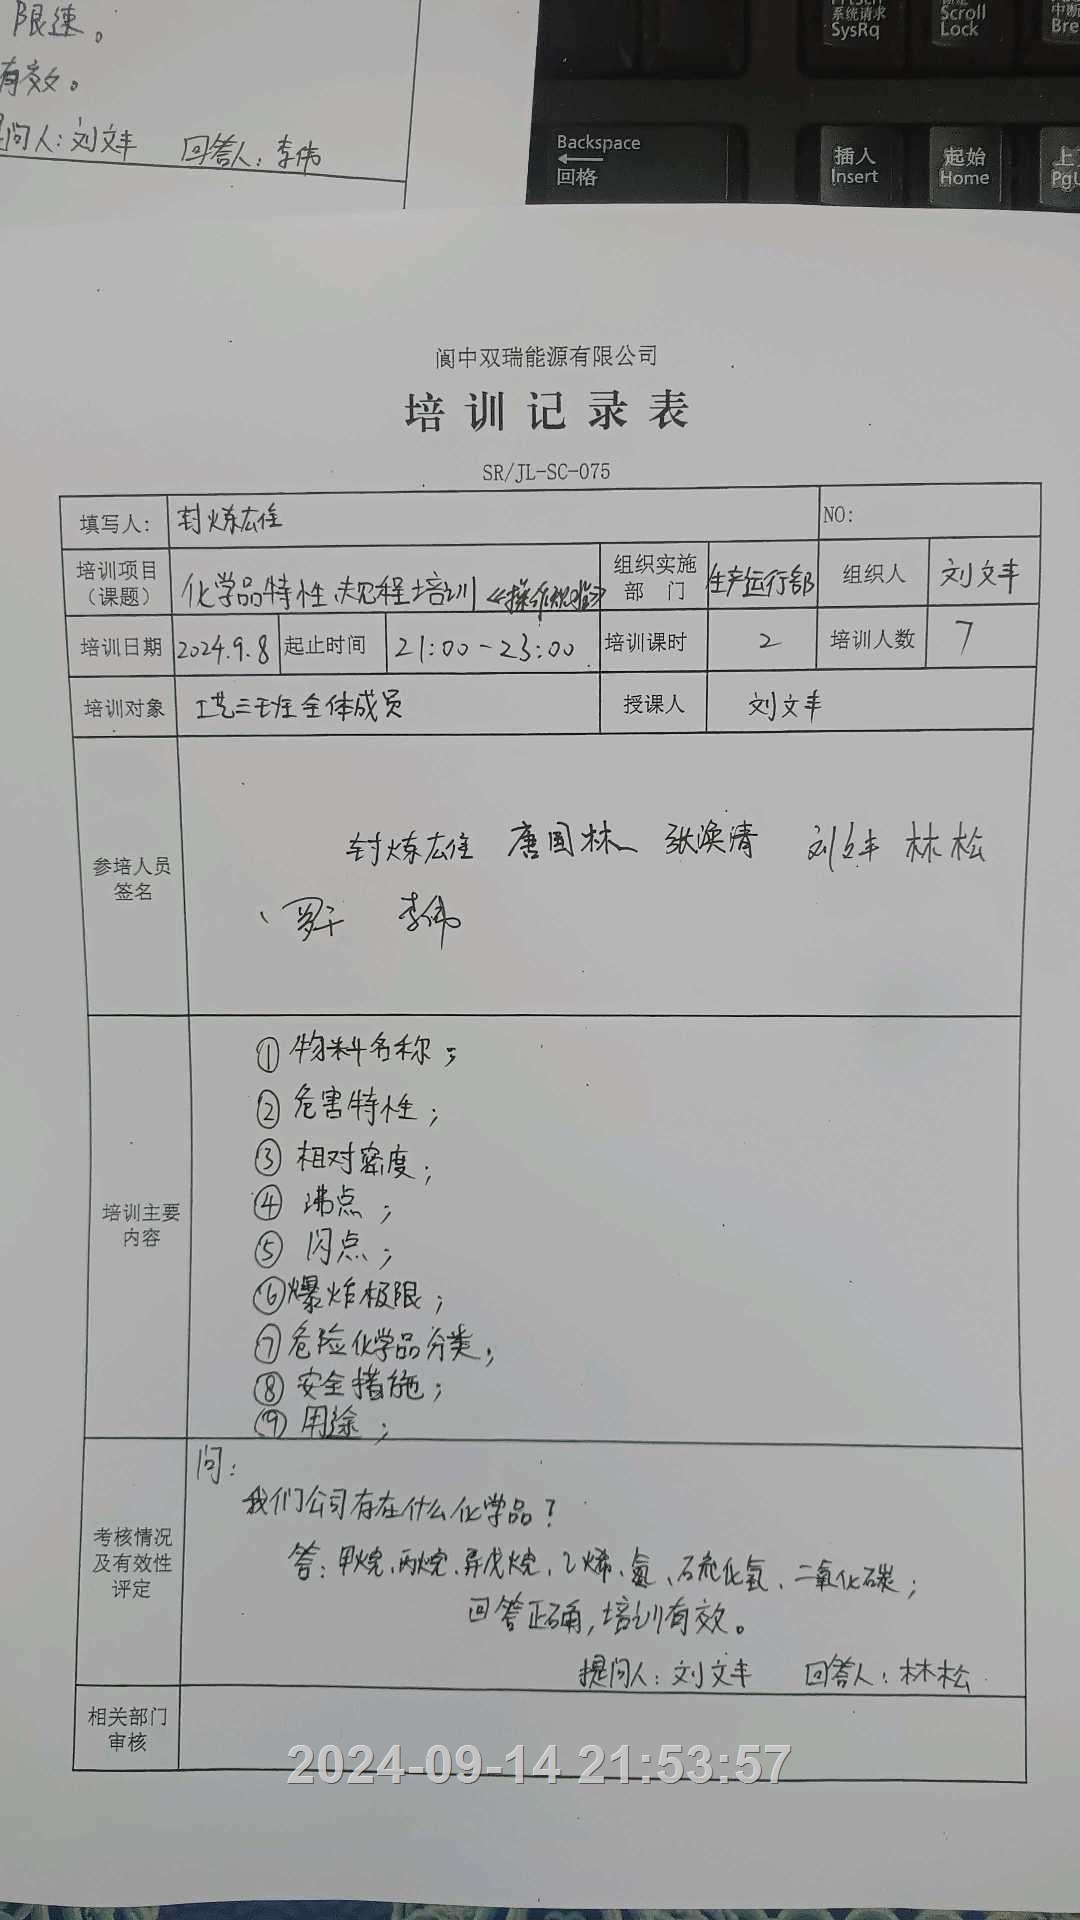 限速。
有效。
提问人:刘文丰 回答人:李伟
系统请求
SysRq
Scroll
Lock
Backspace
回格
插人
Insert
起始
Home
阆中双瑞能源有限公司
培训记录表
SR/JL-SC-075
填写人: 封炼雄 NO:
培训项目（课题） 化学品特性 规程培训 组织实施部门 生产运行部 组织人 刘文丰
培训日期 2024.9.8 起止时间 21:00-23:00 培训课时 2 培训人数 7
培训对象 工艺三班全体成员 授课人 刘文丰
参培人员签名
唐国林 张涣清 刘文丰 林松
李伟
培训主要内容
①物料名称;
②危害特性;
③相对密度;
④沸点;
⑤闪点;
⑥爆炸极限;
⑦危险化学品分类;
⑧安全措施;
⑨用途;
考核情况及有效性评定
问:
我们公司存在什么化学品?
答:甲烷、丙烷、异戊烷、乙烯、氮、硫化氢、二氧化碳;
回答正确,培训有效。
提问人:刘文丰 回答人:林松
相关部门审核
2024-09-14 21:53:57